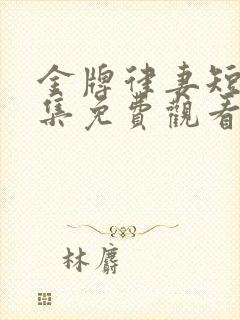 金牌律妻短
集免費觀看
林麝